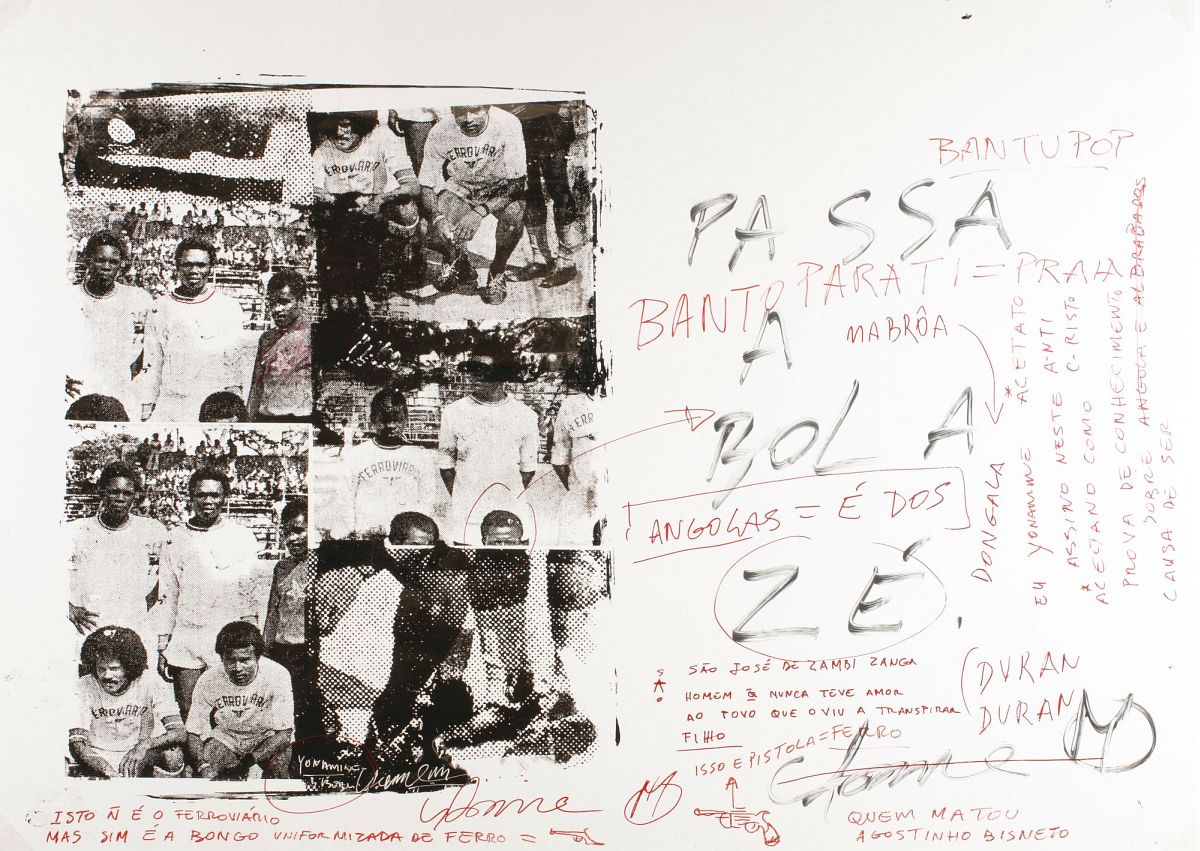 FERROVIARIO
FERROVIARIO
FERROVIARIO
FERR
FERROVIARIO
FERROVIARIO
YONAMINE
ISTO Ñ É O FERROVIÁRIO
MAS SIM É A BONGO UNIFORMIZADA DE FERRO =
BANTUPOP
PASSA
BANTO PARA TI = PRAH
A
MABRÔA
BOLA
ANGOLAS = É DOS
ZÉ.
DONGALA
* ACETATO
EU YONAMINE
ASSINO NESTE ANTI
C-RISTO
* ACEETANO COMO
PROVA DE CONHECIMENTO
SOBRE ANGOLA E ALBRABADOS
CAUSA DE SER
SÃO
SÃO JOSÉ DE ZAMBI ZANGA
HOMEM Q NUNCA TEVE AMOR
AO POVO QUE O VIU A TRANSPIRAR
FILHO
ISSO E PISTOLA = FERRO
A
DURAN
DURAN
QUEM MATOU
AGOSTINHO BISNETO